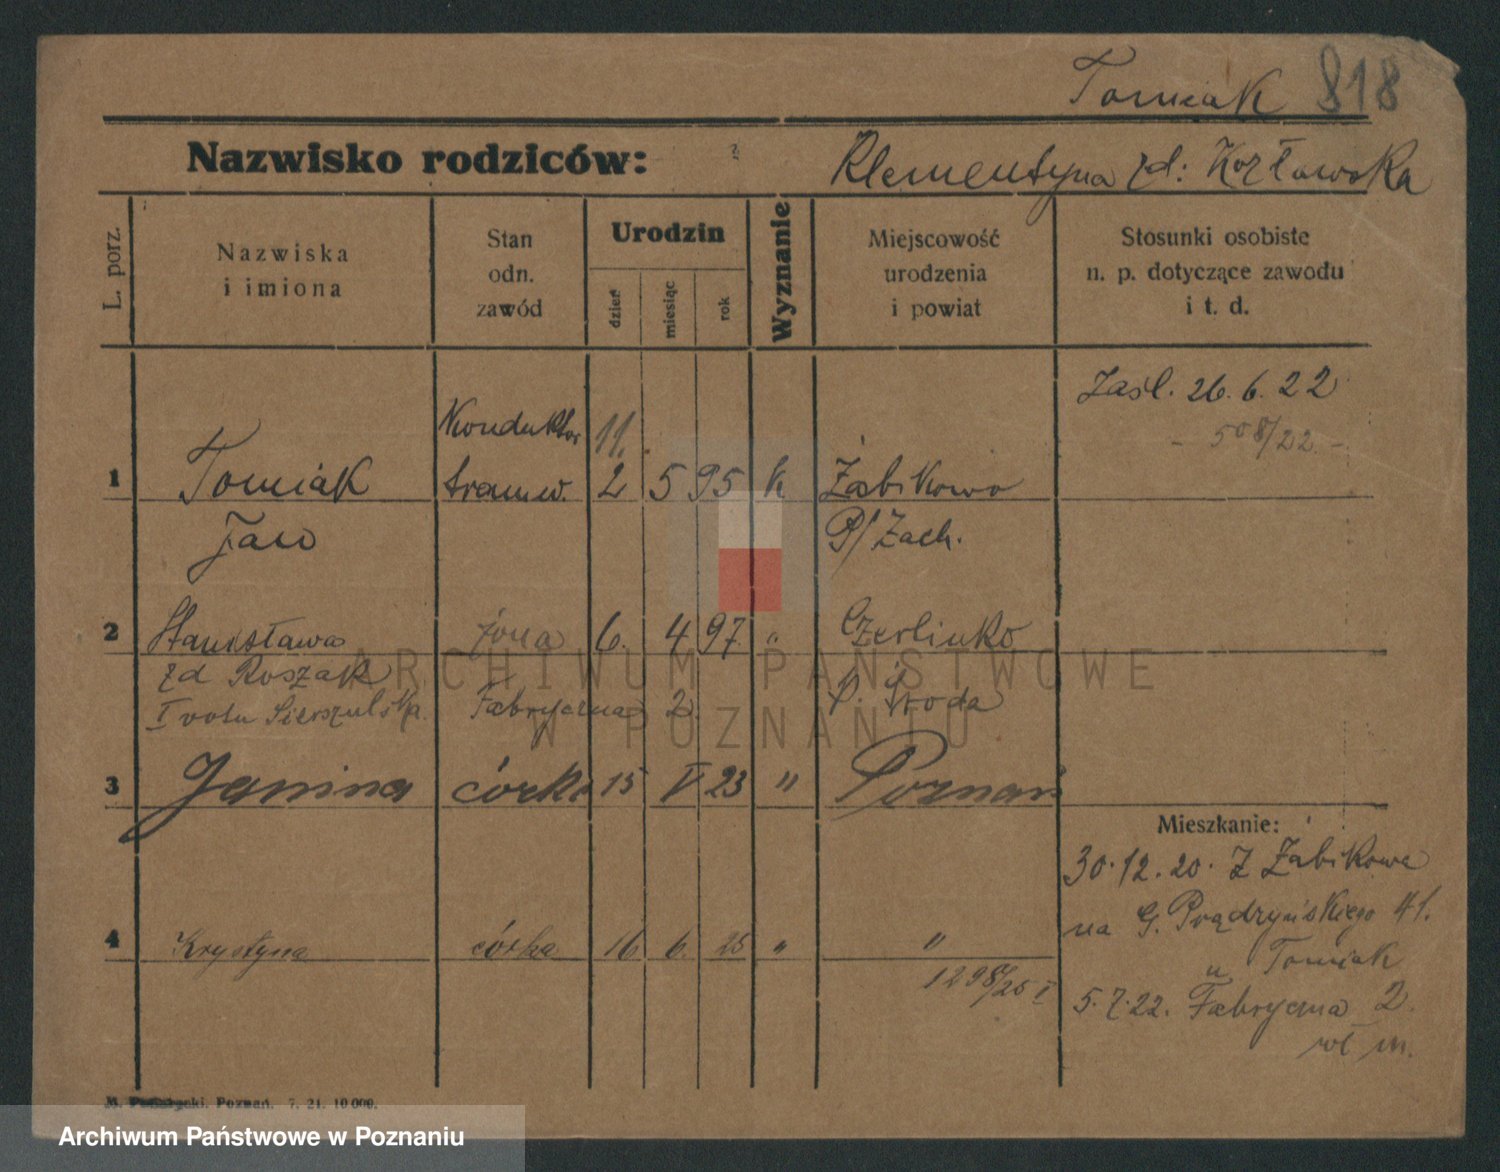 Tomiak 818
Nazwisko rodziców: Klementyna zd: Kozłowska
L. porz.
Nazwiska
i imiona
Stan
odn.
zawód
Urodzin
dzień
miesiąc
rok
Wyznanie
Miejscowość
urodzenia
i powiat
Stosunki osobiste
n. p. dotyczące zawodu
i t. d.
Zaśl. 26.6.22
- 508/22 -
Konduktor 11.
1 Tomiak tramw. 2 5 95 k Żabikowo
Jan P/Zach.
2 Stanisława żona 6. 4 97 " Czerlinko
zd Roszak p. Środa
I voto Sierszulska Fabryczna 2.
3 Janina córka 15 V 23 " Poznań
Mieszkanie:
30.12.20. Z Żabikowa
na G. Prądzyńskiego 41.
u Tomiak
4 Krystyna córka 16 6. 25 " "
1298/25 I
5.7.22. Fabryczna 2.
wł m.
Poznań. 7. 21. 10 000.
ARCHIWUM PAŃSTWOWE
W POZNANIU
Archiwum Państwowe w Poznaniu